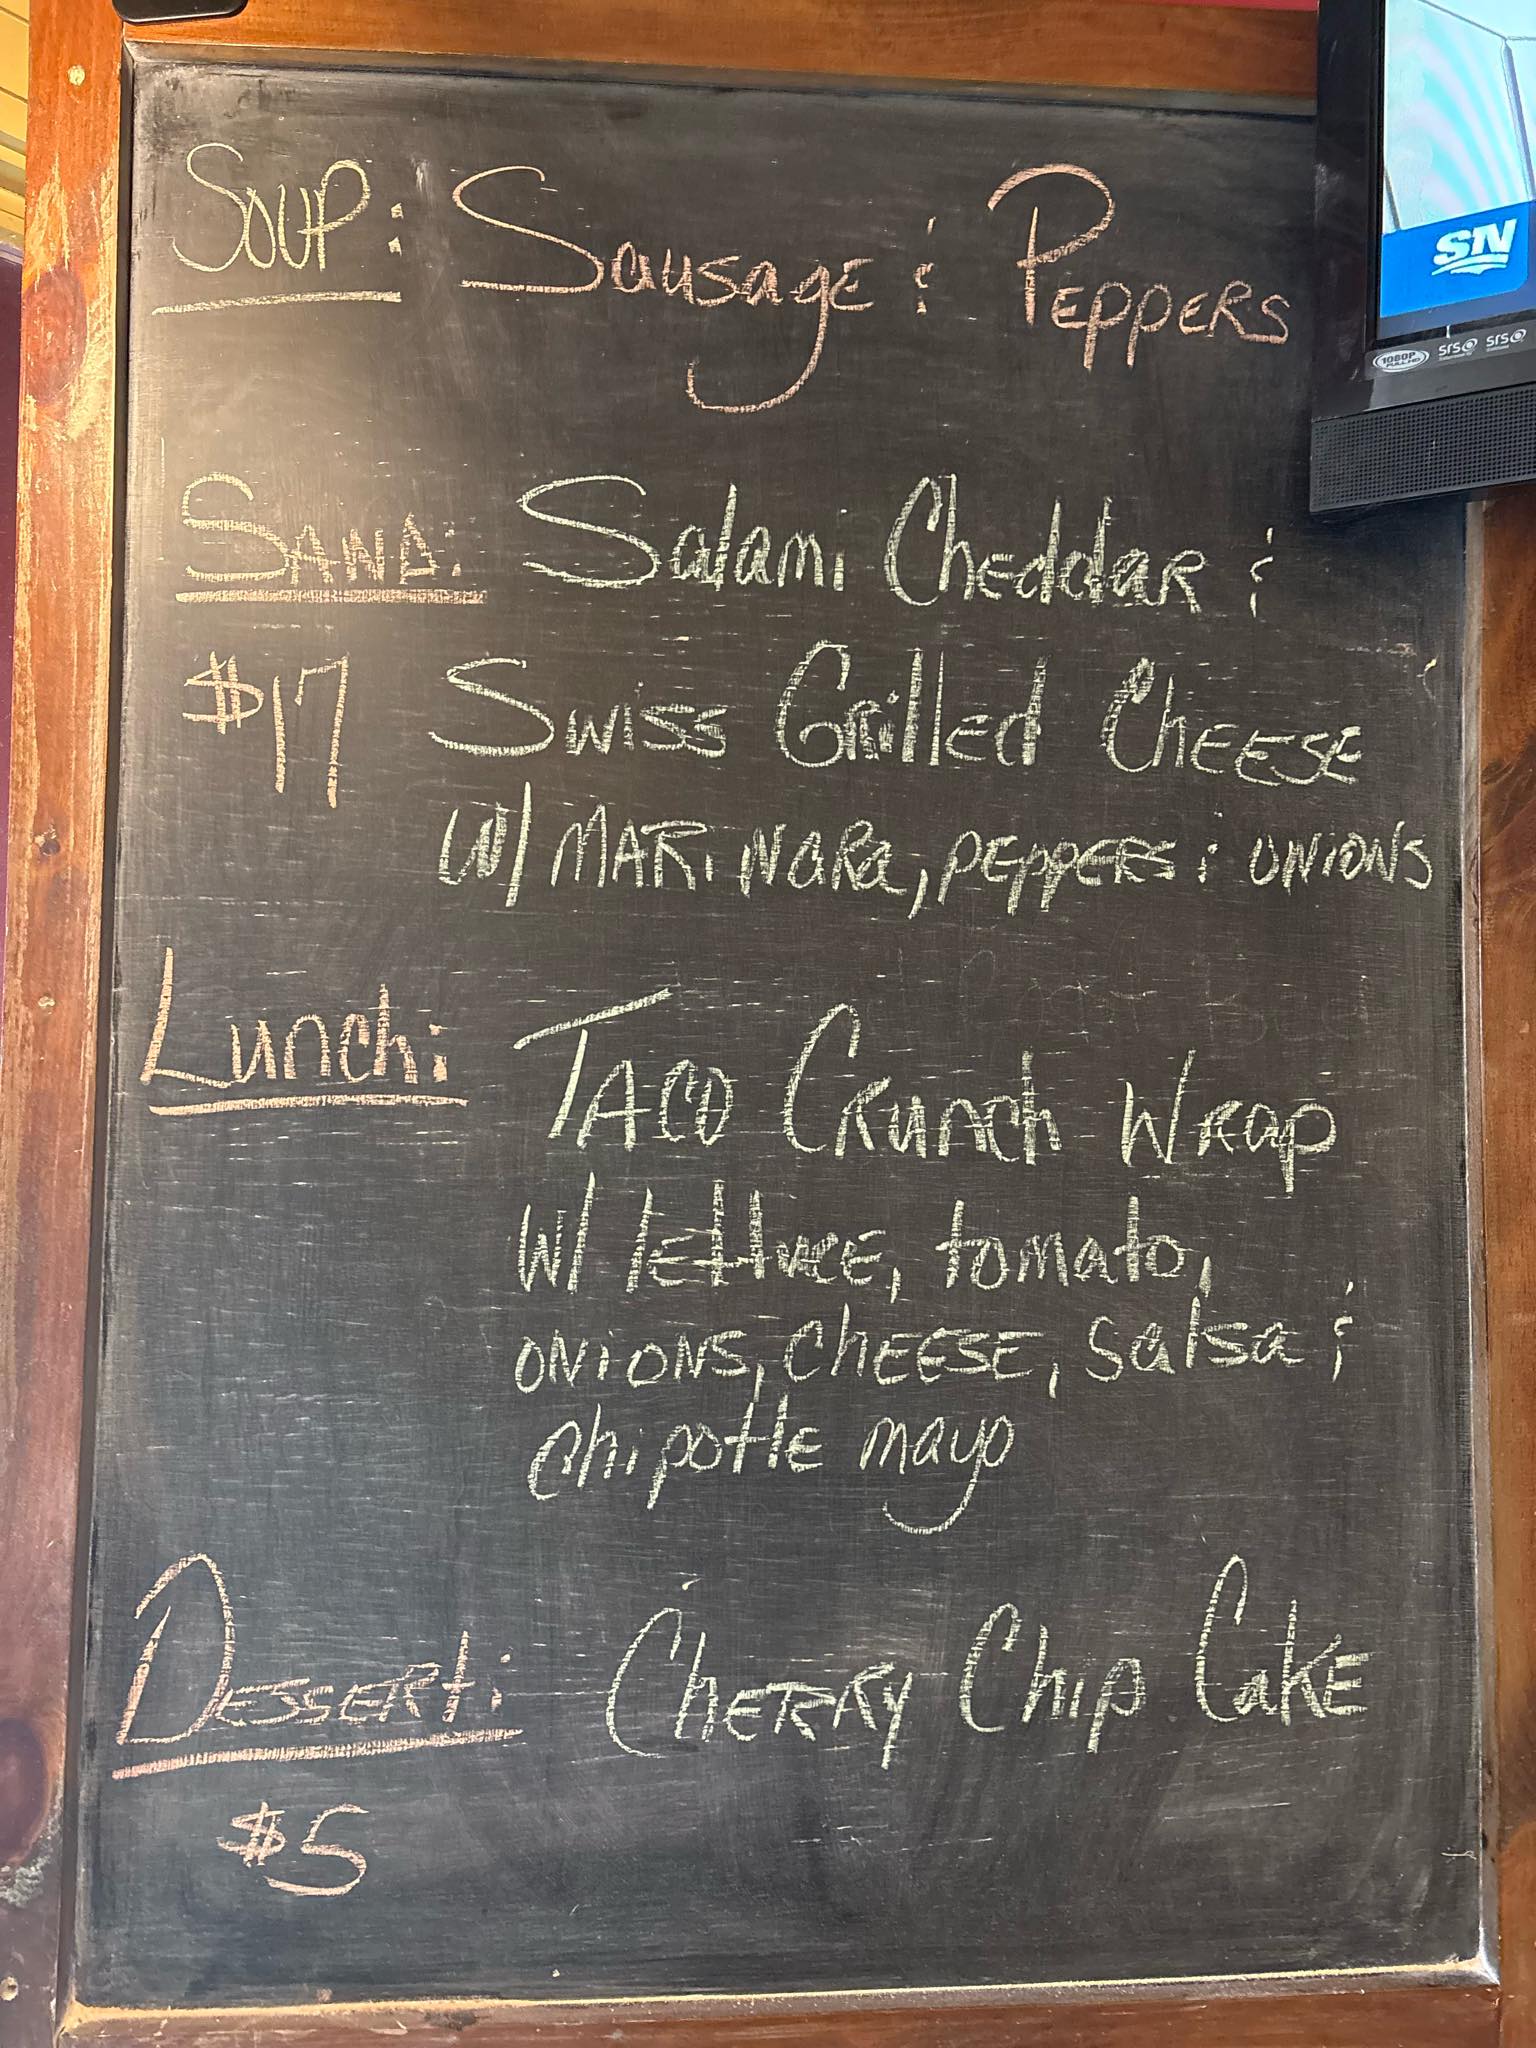 Soup: Sausage & Peppers
Sand: Salami Cheddar &
$17 Swiss Grilled Cheese
w/ marinara, peppers & onions
Lunch: Taco Crunch Wrap
w/ lettuce, tomato,
onions, cheese, salsa &
chipotle mayo
Dessert: Cherry Chip Cake
$5
SN
1080P
SRS
SRS